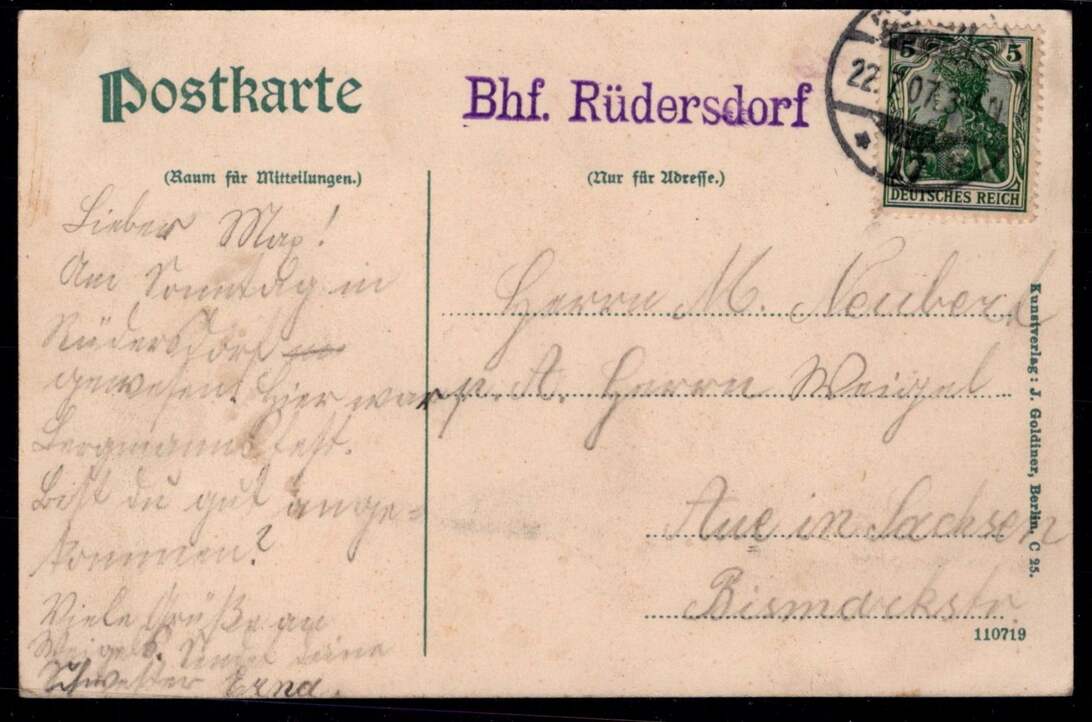 Postkarte
Bhf. Rüdersdorf
22. 07. 3
5 5
DEUTSCHES REICH
(Raum für Mitteilungen.)
(Nur für Adresse.)
Lieber Max!
Am Sonntag in
Rüdersdorf
gewesen. Hier war
Bergmannsfest.
Bist du gut ange-
kommen?
Viele Grüße an
Weigels. deine
Schwester Erna.
Herrn M. Neubert
p. A. Herrn Weigel
Aue in Sachsen
Bismarckstr.
Kunstverlag: J. Goldiner, Berlin, C 25.
110719